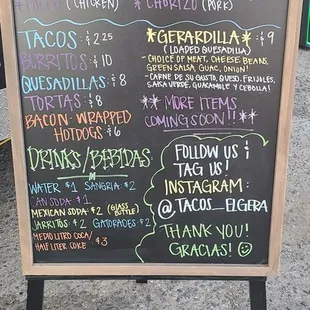 (CHICKEN) * CHORIZO (PORK)
TACOS : $2.25
BURRITOS : $10
QUESADILLAS : $8
TORTAS : $8
BACON-WRAPPED
HOTDOGS : $6
*GERARDILLA* : $9
(LOADED QUESADILLA)
- CHOICE OF MEAT, CHEESE, BEANS,
GREEN SALSA, GUAC, ONION!
- CARNE DE SU GUSTO, QUESO, FRIJOLES,
SALSA VERDE, GUACAMOLE Y CEBOLLA!
** MORE ITEMS
COMING SOON!! **
DRINKS/BEBIDAS
WATER $1 SANGRIA $2
CAN SODA $1
MEXICAN SODA $2 (GLASS BOTTLE)
JARRITOS $2 GATORADES $2
MEDIO LITRO COCA/
HALF LITER COKE $3
FOLLOW US &
TAG US!
INSTAGRAM:
@TACOS_ELGERA
THANK YOU!
GRACIAS!